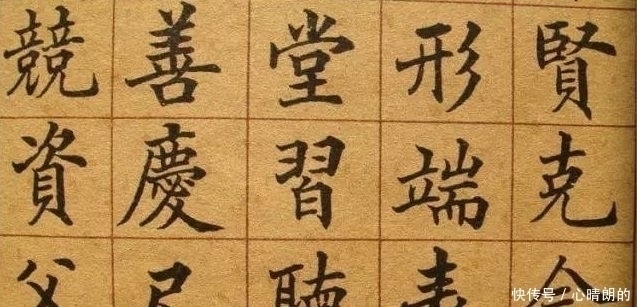 賢克
形端表
堂習聽
善慶尺
競資父
快传号 / 心晴朗的